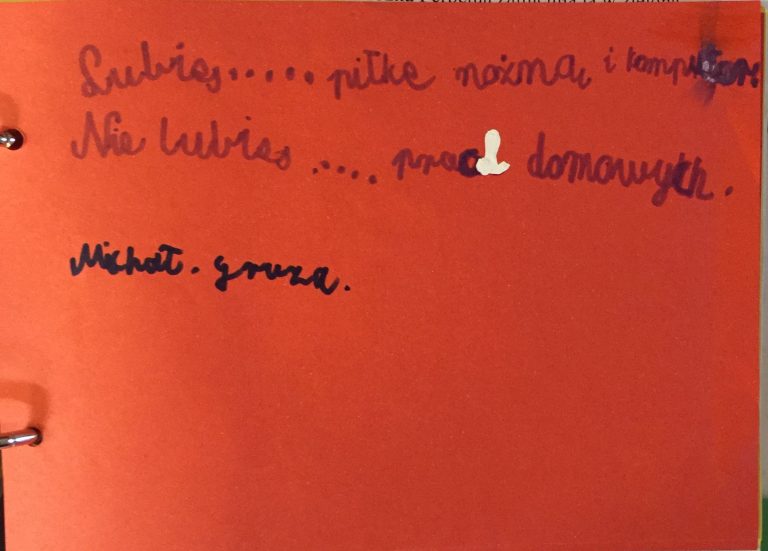 Lubię..... piłke nożną i komputer.
Nie lubię .... prac domowych.
Michał. gruza.